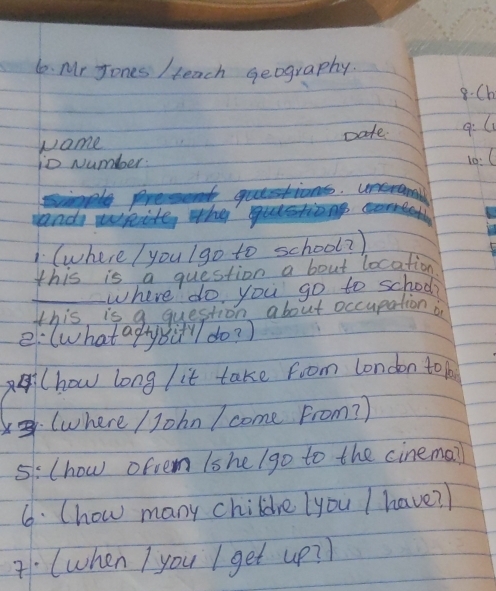 6. Mr Jones / teach geography.
Name Date
ID Number:
Simple Present questions. unscram
and write the questions correctl
1. (where / you / go to school?)
this is a question a bout location.
where do you go to school?
this is a question about occupation or
activity
2: (what / you / do?)
4: (how long / it take from London to
3. (where / John / come from?)
5: (how often / she / go to the cinema?)
6. (how many childre / you / have?)
7. (when / you / get up?)
8. (
9: (
10: (